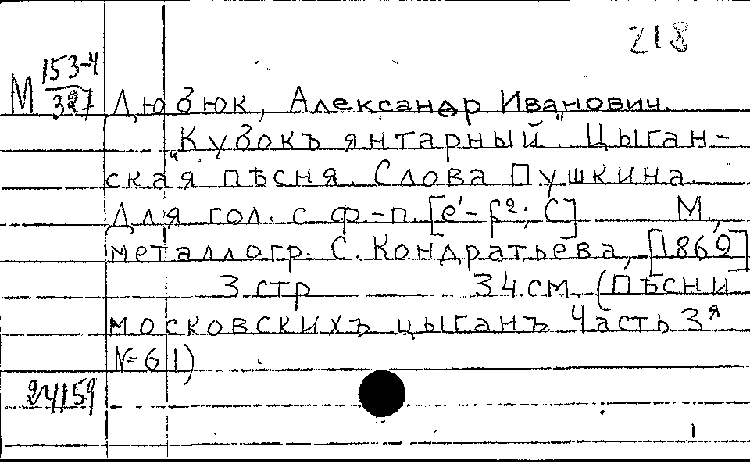 218
М 153-4
327
Дюбюк, Александр Иванович.
"Кубокъ янтарный" Цыган-
ская пѣсня. Слова Пушкина.
Для гол. с ф.-п. [e'-f²; C] М,
металлогр. С. Кондратьева, [1869]
3 стр 34 см. (Пѣсни
московскихъ цыганъ Часть 3я
№ 61)
24159